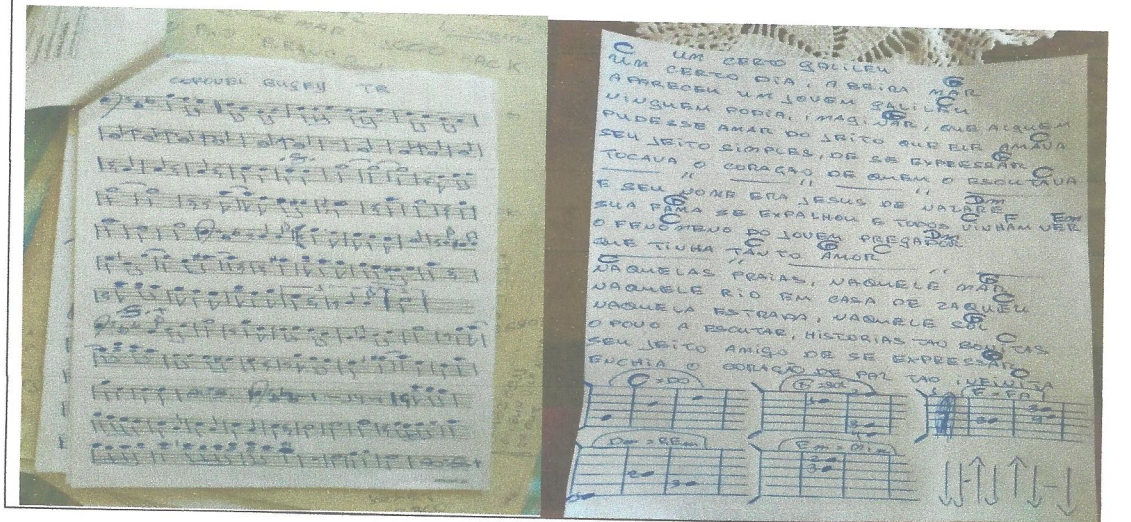 MAR
BACK
CORONEL BUGEY TR
UM CERTO GALILEU
C G
UM CERTO DIA, A BEIRA MAR
C
APARECEU UM JOVEM GALILEU
G
NINGUEM PODIA, IMAGINAR, QUE ALGUEM
C
PUDESSE AMAR DO JEITO QUE ELE AMAVA
G
SEU JEITO SIMPLES, DE SE EXPRESSAR
C
TOCAVA O CORAÇÃO DE QUEM O ESCUTAVA
" " "
Dm
E SEU NOME ERA JESUS DE NAZARÉ
G C F Em
SUA FAMA SE ESPALHOU E TODOS VINHAM VER
C Dm
O FENOMENO DO JOVEM PREGADOR
C G C
QUE TINHA TANTO AMOR
" "
C G
NAQUELAS PRAIAS, NAQUELE MAR
C
NAQUELE RIO EM CASA DE ZAQUEU
G
NAQUELA ESTRADA, NAQUELE SOL
C
O POVO A ESCUTAR, HISTORIAS TAO BONITAS
G
SEU JEITO AMIGO DE SE EXPRESSAR
C
ENCHIA O CORAÇÃO DE PAZ TAO INFINITA
C = DO G = SOL F = FA
Dm = REm Em = MIm